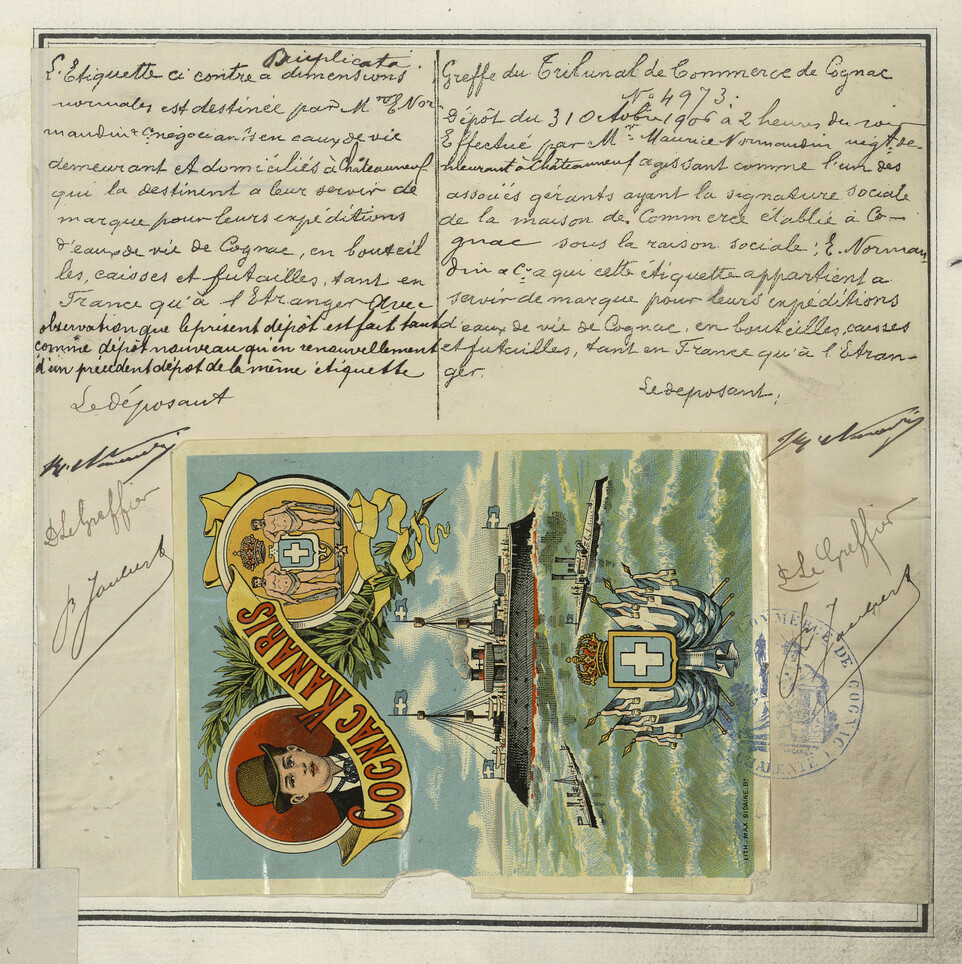 Duplicata
L'Etiquette ci contre a dimensions
normales est destinée par Mrs E Nor
mandin & Cie négociants en eaux de vie
demeurant et domiciliés à Châteauneuf
qui la destinent a leur servir de
marque pour leurs expéditions
d'eaux de vie de Cognac, en bouteil
les, caisses et futailles, tant en
France qu'à l'Etranger Avec
observation que le présent dépôt est fait tant
comme dépôt nouveau qu'en renouvellement
d'un précédent dépôt de la même étiquette
Le déposant
Le Greffier
Greffe du Tribunal de Commerce de Cognac
No 4973.
Dépôt du 31 Octobre 1906 à 2 heures du soir
Effectué par Mr Maurice Normandin négt. de-
meurant à Châteauneuf agissant comme l'un des
associés gérants ayant la signature sociale
de la maison de Commerce établie à Co-
gnac sous la raison sociale: E. Norman
din & Cie a qui cette étiquette appartient a
servir de marque pour leurs expéditions
d'eaux de vie de Cognac, en bouteilles, caisses
et futailles, tant en France qu'à l'Etran-
ger.
Le deposant,
Le Greffier
COGNAC KANARIS
LITH. MAX. SIDAINE. Bx
COMMERCE DE COGNAC